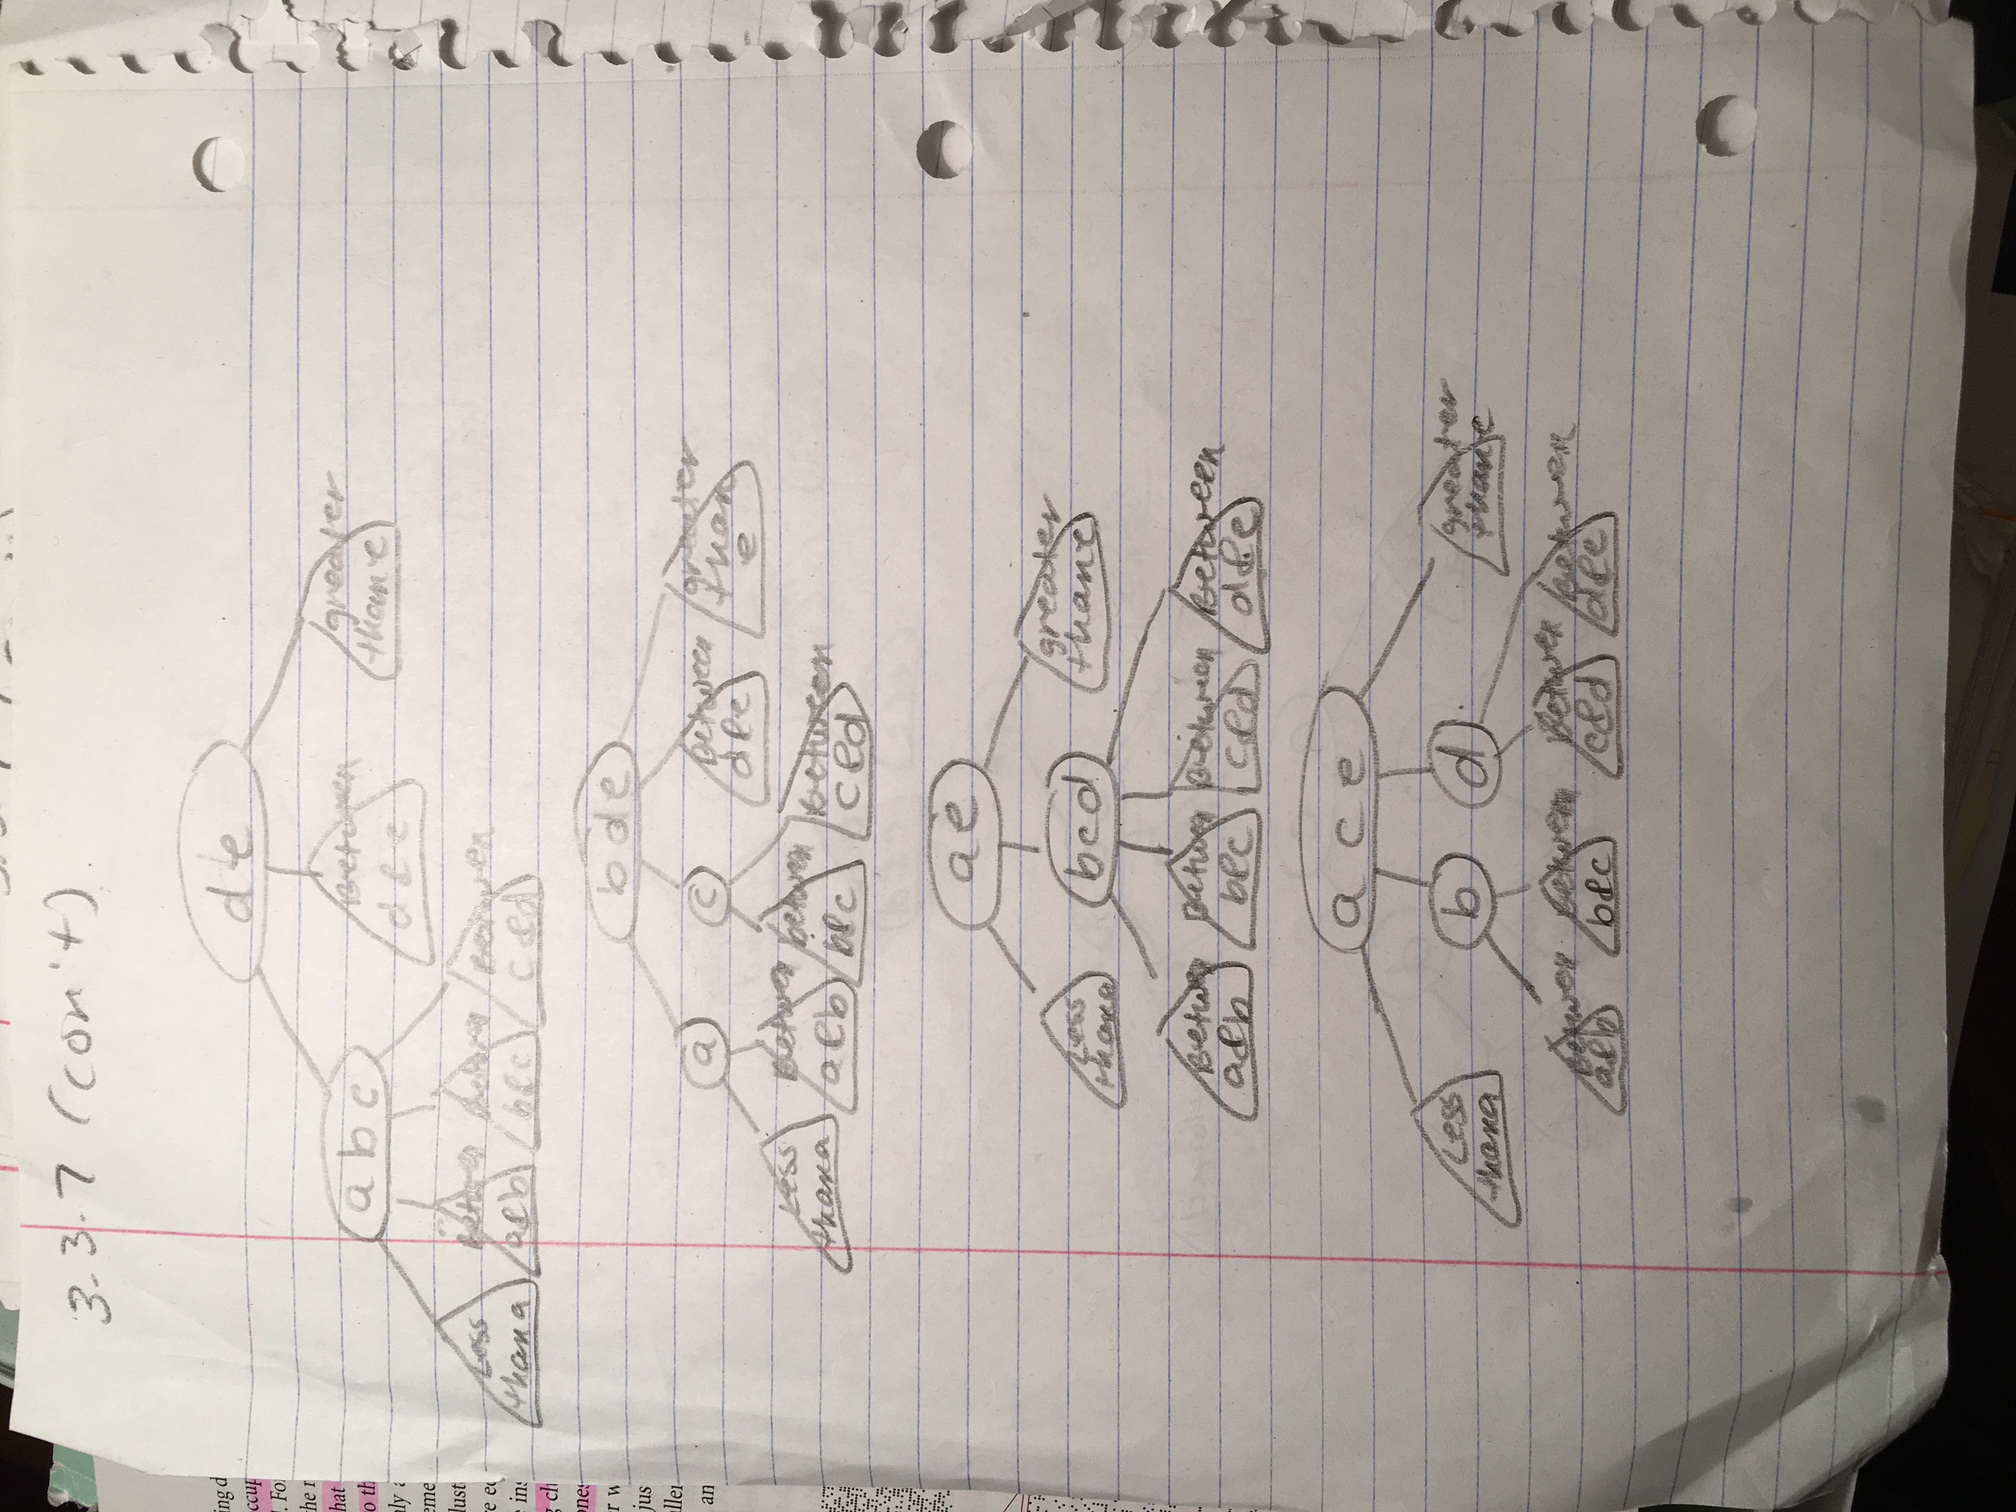 3.3.7 (con't)
d e
a b c
Between
d & e
greater
than e
Less
than a
Between
a & b
Between
b & c
Between
c & d
b d e
a
c
Between
d & e
greater
than
e
Less
than a
Between
a & b
between
b & c
Between
c & d
a e
Less
than a
bcd
greater
than e
Between
a & b
Between
b & c
Between
c & d
Between
d & e
a c e
Less
than a
b
d
greater
than e
Between
a & b
Between
b & c
Between
c & d
Between
d & e
ing d
ccup
. Fo
the r
that
o th
nly a
eme
lust
e ins
g cl
ones
er w
jus
aller
an